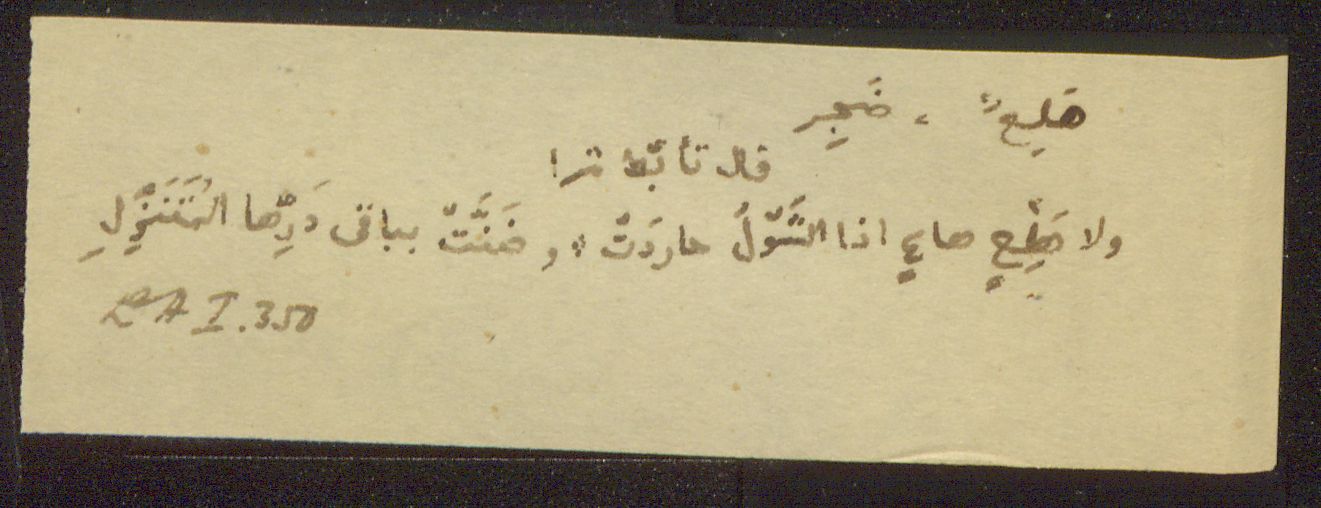 هَلِعٌ ، ضَجِر
قال تأبّط شرا
ولا هَلِعٍ هاعٍ اذا الشَّوْلُ حاردَتْ ؛ وضَنَّتْ بباقى دَرِّها المُتَنَزَّلِ
LA I.350